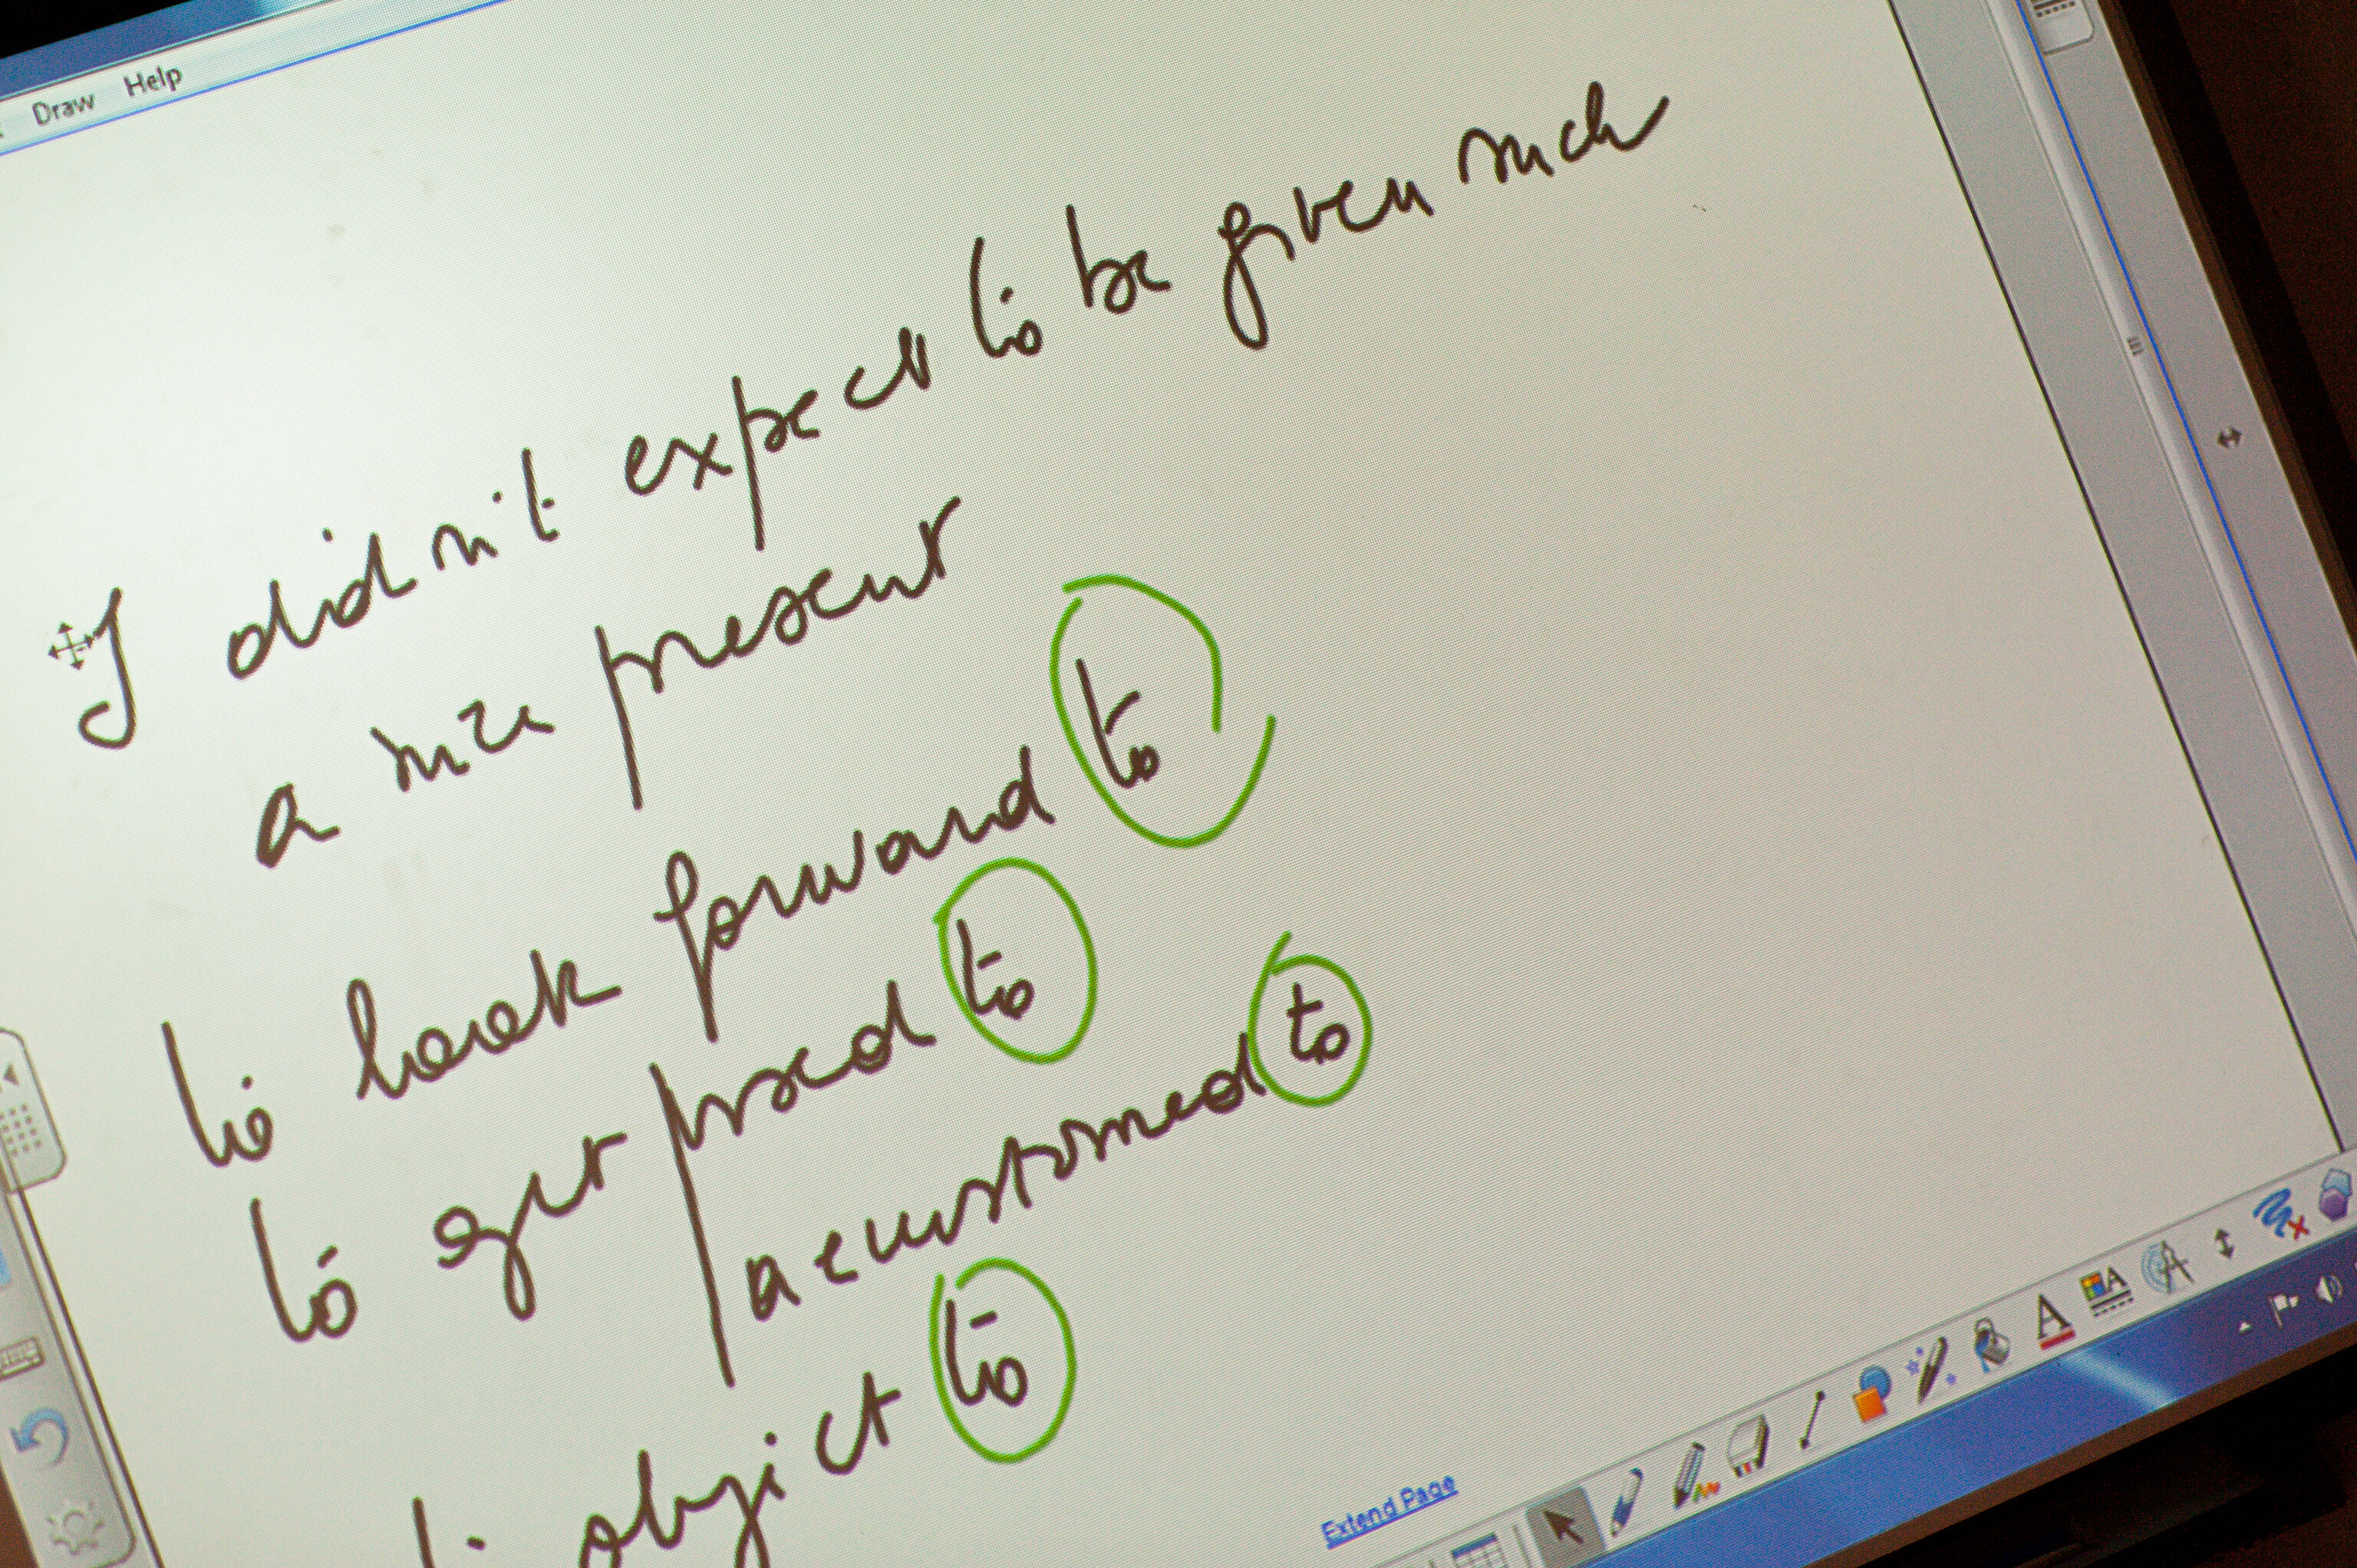 Draw Help
I didn't expect to be given such
a nice present
to look forward to
to get used to
accustomed to
to object to
Extend Page